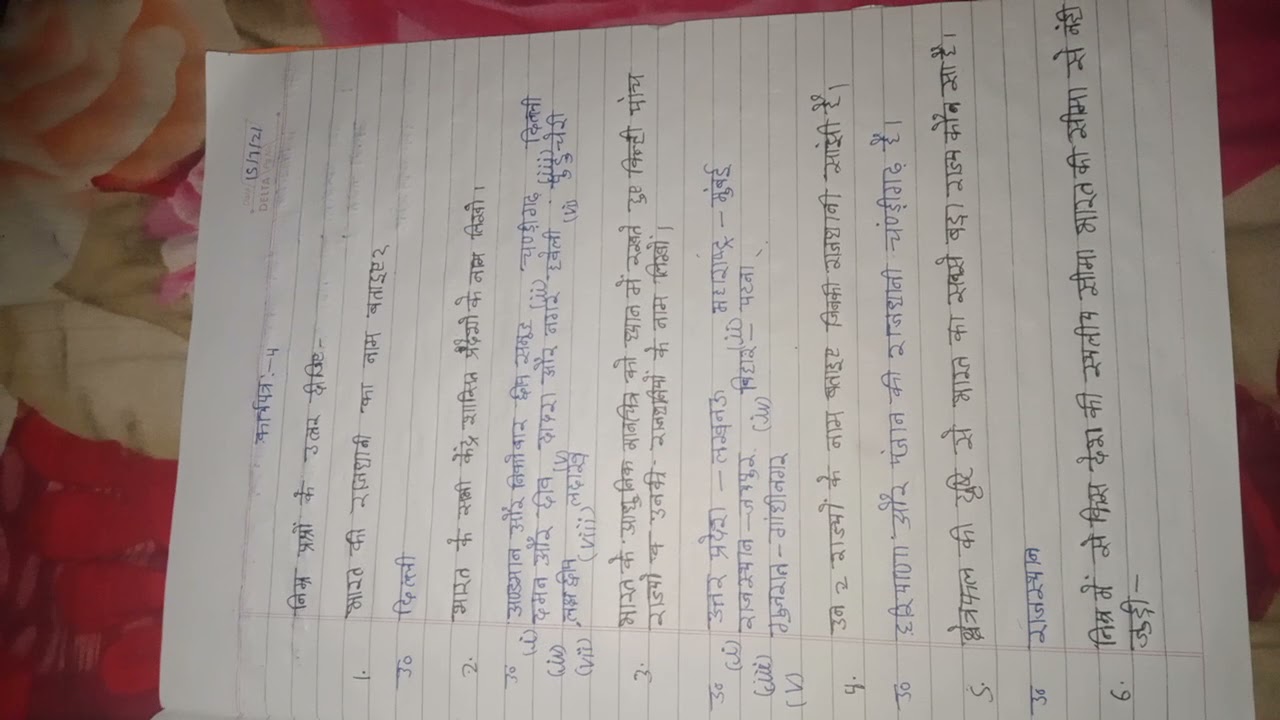 Date 15/7/21
DELTA
कार्यपत्र:-4
निम्न प्रश्नों के उत्तर दीजिए:-
1. भारत की राजधानी का नाम बताइए?
उ० दिल्ली
2. भारत के सभी केंद्र शासित प्रदेशो के नाम लिखो।
उ० (i) अण्डमान और निकोबार द्वीप समूह (ii) चण्डीगढ़ (iii) दिल्ली
(iv) दमन और दीव (v) दादरा और नगर हवेली (vi) पुडुचेरी
(vii) लक्षद्वीप (viii) लद्दाख
3. भारत के आधुनिक मानचित्र को ध्यान में रखते हुए किन्ही पांच
राज्यों व उनकी राजधानियों के नाम लिखों।
उ० (i) उत्तर प्रदेश - लखनऊ (ii) महाराष्ट्र - मुंबई
(iii) राजस्थान - जयपुर (iv) बिहार - पटना
(v) गुजरात - गांधीनगर
4. उन 2 राज्यों के नाम बताइए जिनकी राजधानी सांझी है।
उ० हरियाणा और पंजान की राजधानी चंण्डीगढ़ है।
5. क्षेत्रफल की दृष्टि से भारत का सबसे बड़ा राज्य कौन सा है।
उ० राजस्थान
6. निम्न में से किस देश की स्थलीय सीमा भारत की सीमा से नही
जुड़ी:-